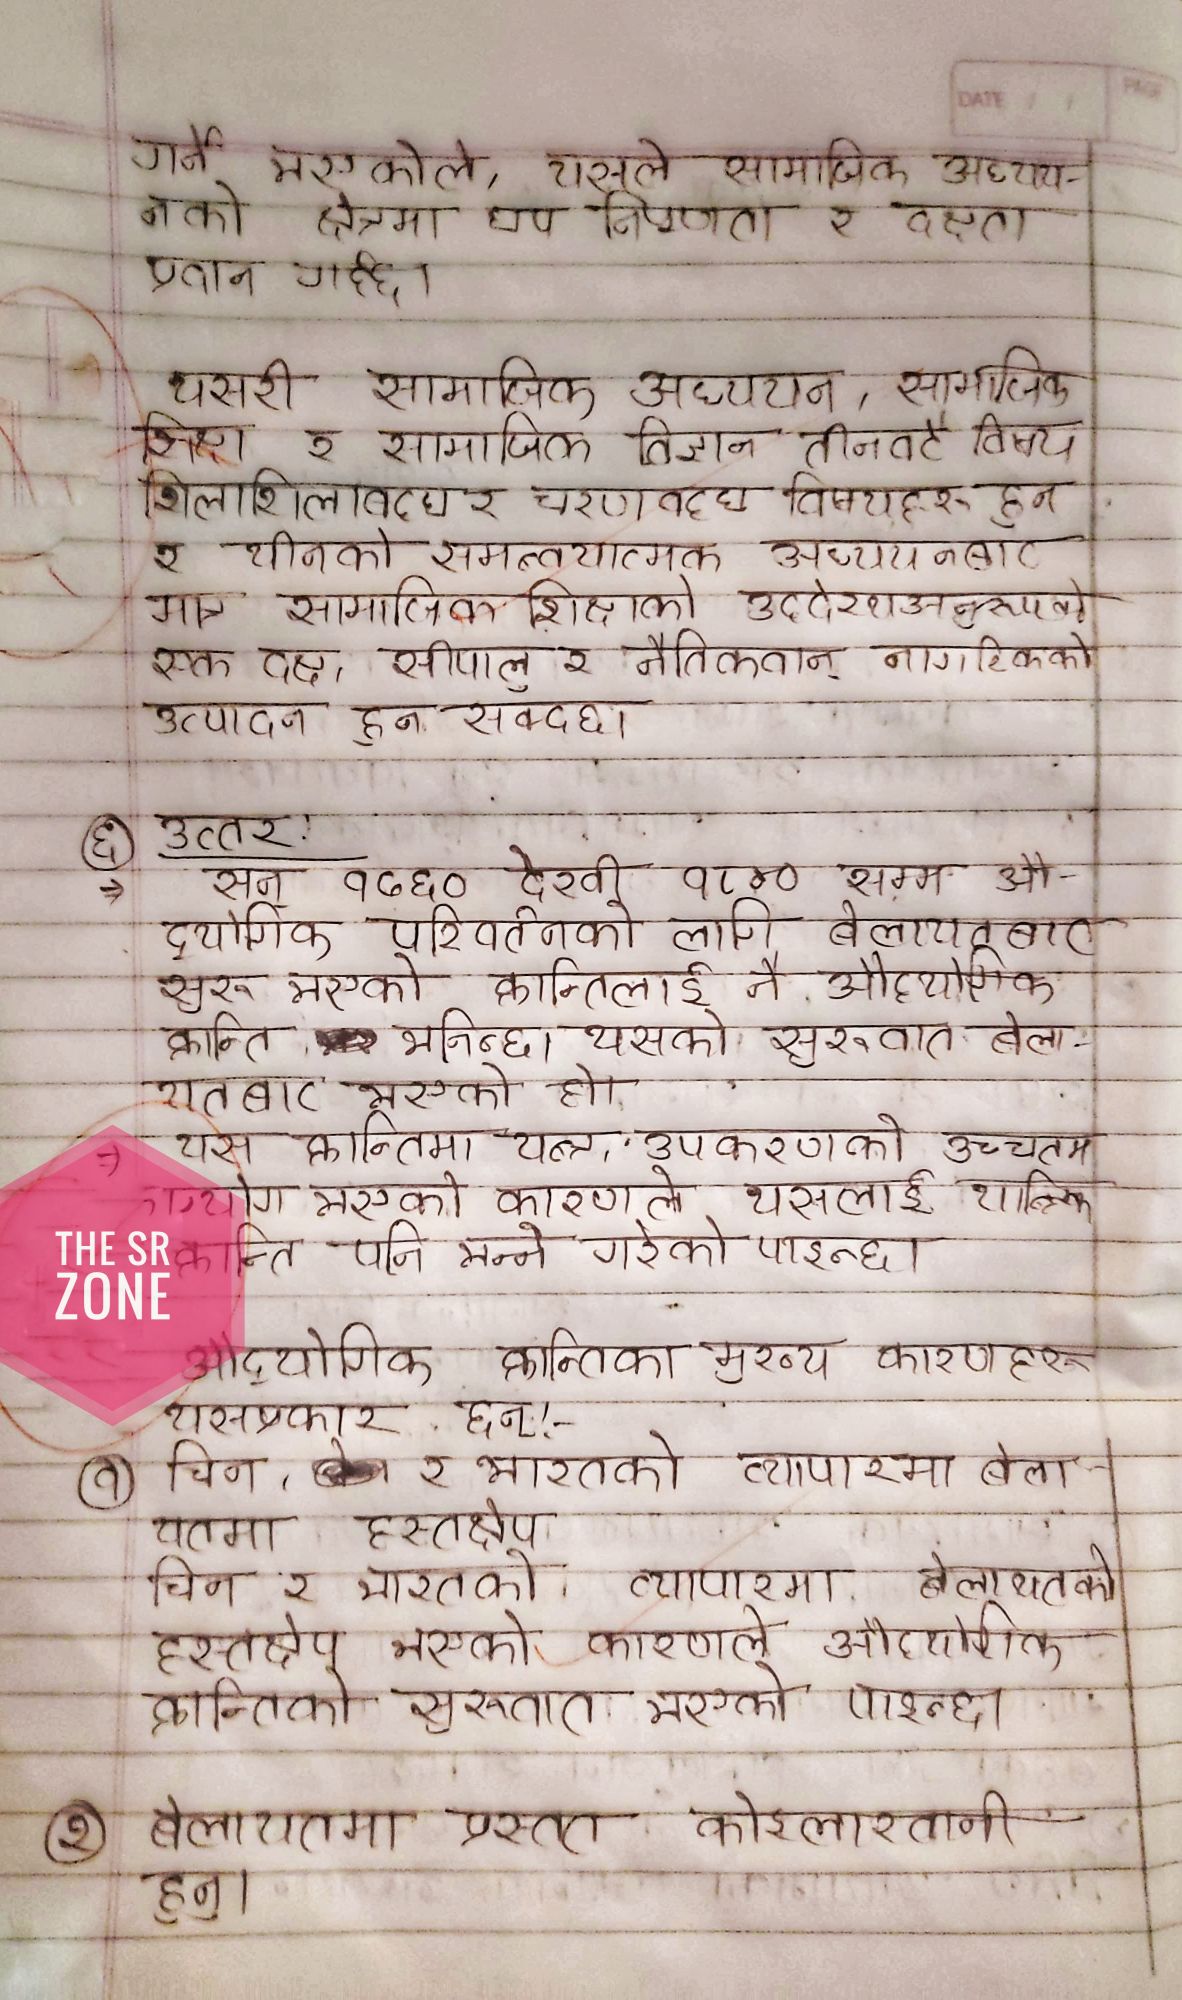 DATE / / PAGE
गर्ने भएकोले, यसले सामाजिक अध्यय-
नको क्षेत्रमा थप निपुणता र दक्षता
प्रदान गर्दछ।
यसरी सामाजिक अध्ययन, सामाजिक
शिक्षा र सामाजिक विज्ञान तीनवटै विषय
शिलाशिलावद्घ र चरणवद्घ विषयहरू हुन
र यीनको समन्वयात्मक अध्ययनबाट
मात्र सामाजिक शिक्षाको उद्देश्यअनुरूपको
एक दक्ष, सीपालु र नैतिकवान् नागरिकको
उत्पादन हुन सक्दछ।
६ उत्तर:
→ सन् १७६० देखी १८४० सम्म औ-
द्योगिक परिवर्तनको लागि बेलायतबाट
सुरू भएको क्रान्तिलाई नै औद्योगिक
क्रान्ति भनिन्छ। यसको सुरूवात बेला-
यतबाट भएको हो।
→ यस क्रान्तिमा यन्त्र, उपकरणको उच्चतम
भएको कारणले यसलाई यान्त्रिक
क्रान्ति पनि भन्ने गरेको पाइन्छ।
THE SR
ZONE
औद्योगिक क्रान्तिका मुख्य कारणहरू
यसप्रकार छन्:-
१ चिन, र भारतको व्यापारमा बेला-
यतमा हस्तक्षेप
चिन र भारतको व्यापारमा बेलायतको
हस्तक्षेप भएको कारणले औद्योगिक
क्रान्तिको सुरूवात भएको पाइन्छ।
२ बेलायतमा प्रस्त कोइलाखानी
हुनु।